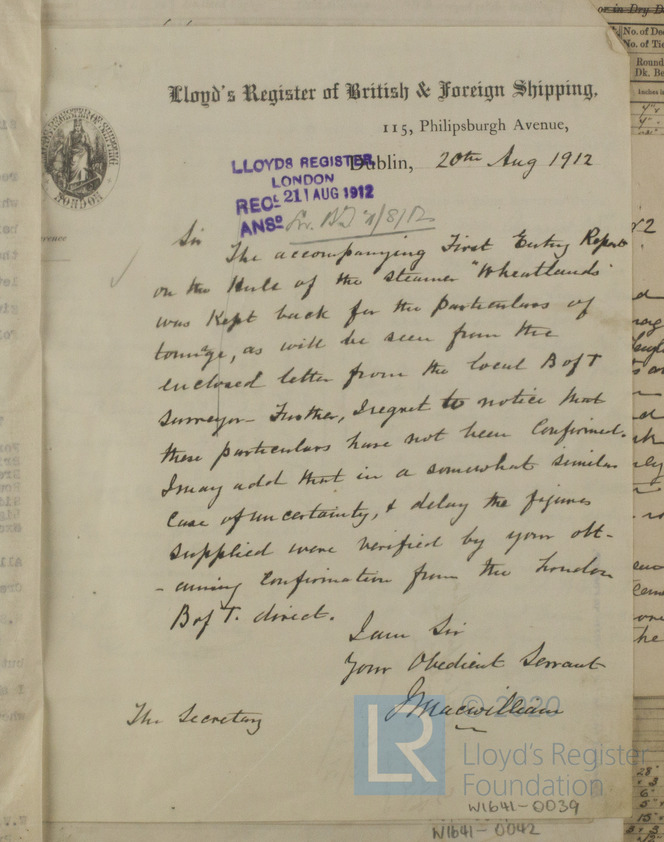 Lloyd's Register of British & Foreign Shipping,
115, Philipsburgh Avenue,
Dublin, 20th Aug 1912
LLOYDS REGISTER
LONDON
REC. 21 AUG 1912
ANSD
Sir
The accompanying First Entry Report
on the Hull of the steamer "Wheatlands"
was kept back for the particulars of
tonnage, as will be seen from the
enclosed letter from the local B of T
surveyor. Further, I regret to notice that
these particulars have not been confirmed.
I may add that in a somewhat similar
case of uncertainty, & delay the figures
supplied were verified by your obt-
-aining confirmation from the London
B of T. direct.
I am Sir
Your Obedient Servant
J Macwilliam
The Secretary
LONDON
© 2020
LR
Lloyd's Register
Foundation
W1641-0039
W1641-0042
or in Dry D
No. of De
No. of Tie
Round
Dk. Be
Inches